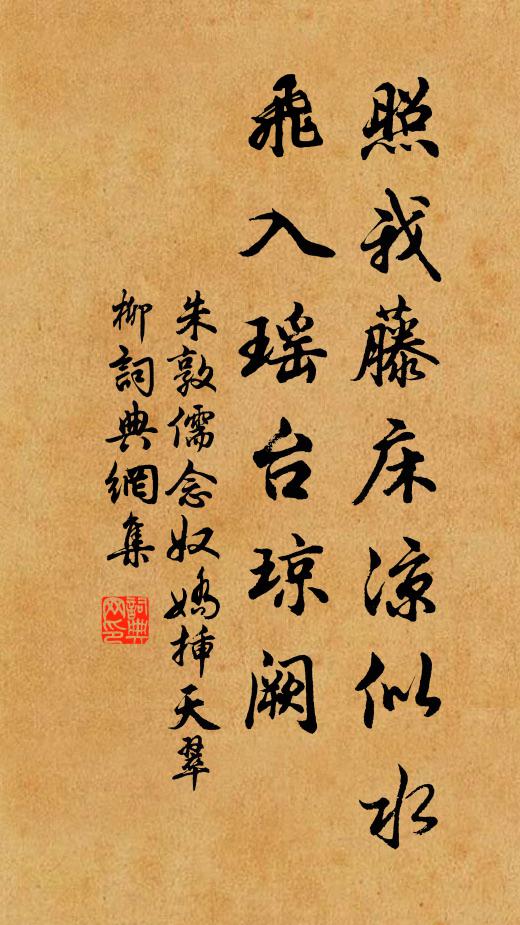 照我藤床凉似水
飛入瑶台琼阙
朱敦儒念奴嬌插天翠
柳詞典網集
詞典
网印